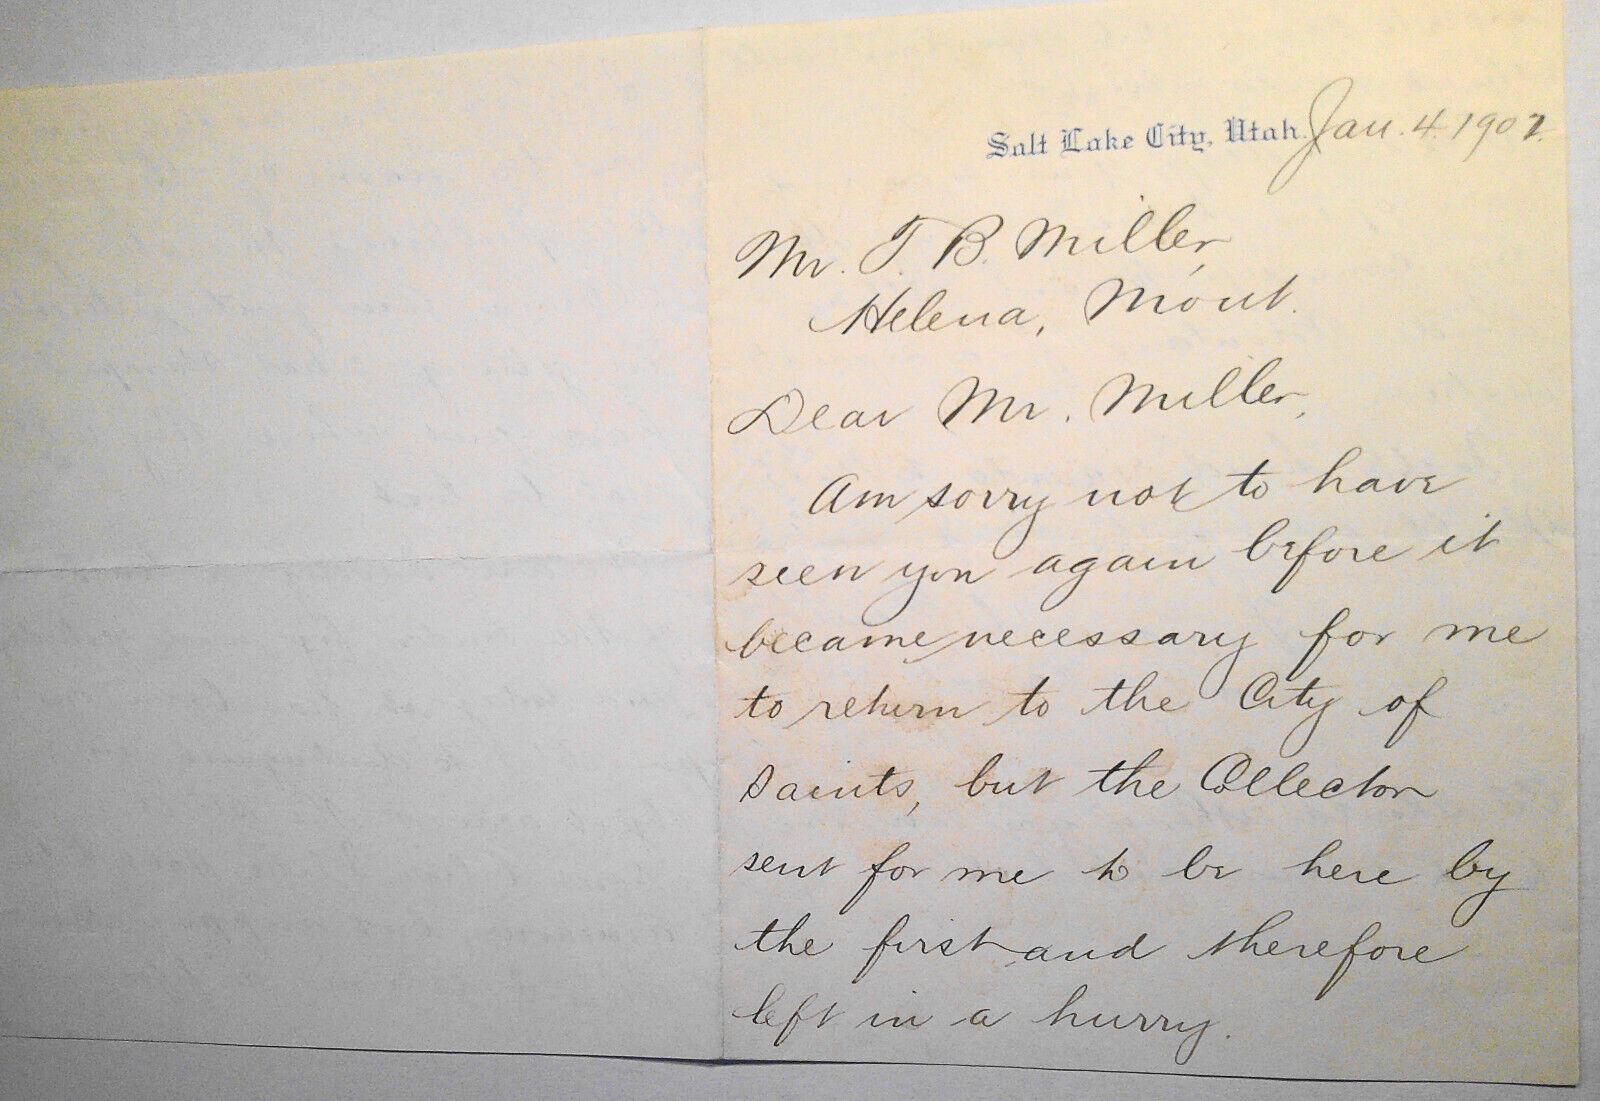 Salt Lake City, Utah. Jan. 4. 1902.
Mr. T. B. Miller,
Helena, Mont.
Dear Mr. Miller,
Am sorry not to have
seen you again before it
became necessary for me
to return to the City of
Saints, but the Collector
sent for me to be here by
the first and therefore
left in a hurry.